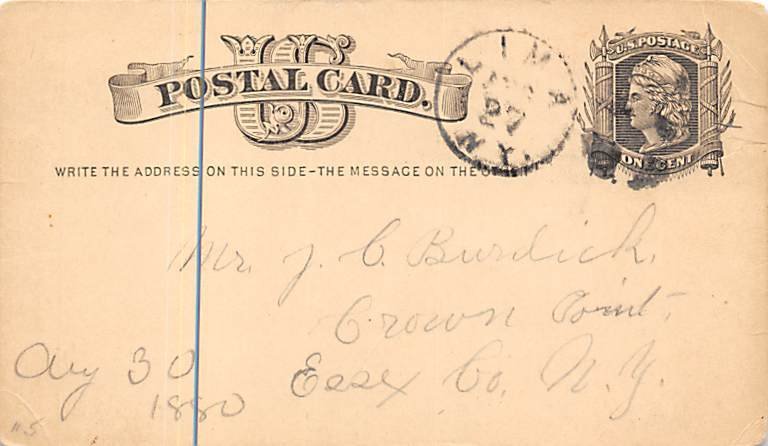 US
POSTAL CARD.
LIMA
N.Y.
U.S. POSTAGE
ONE CENT
WRITE THE ADDRESS ON THIS SIDE–THE MESSAGE ON THE
Mr. J. C. Burdick,
Crown Point,
Essex Co. N. Y.
Aug 30
1880